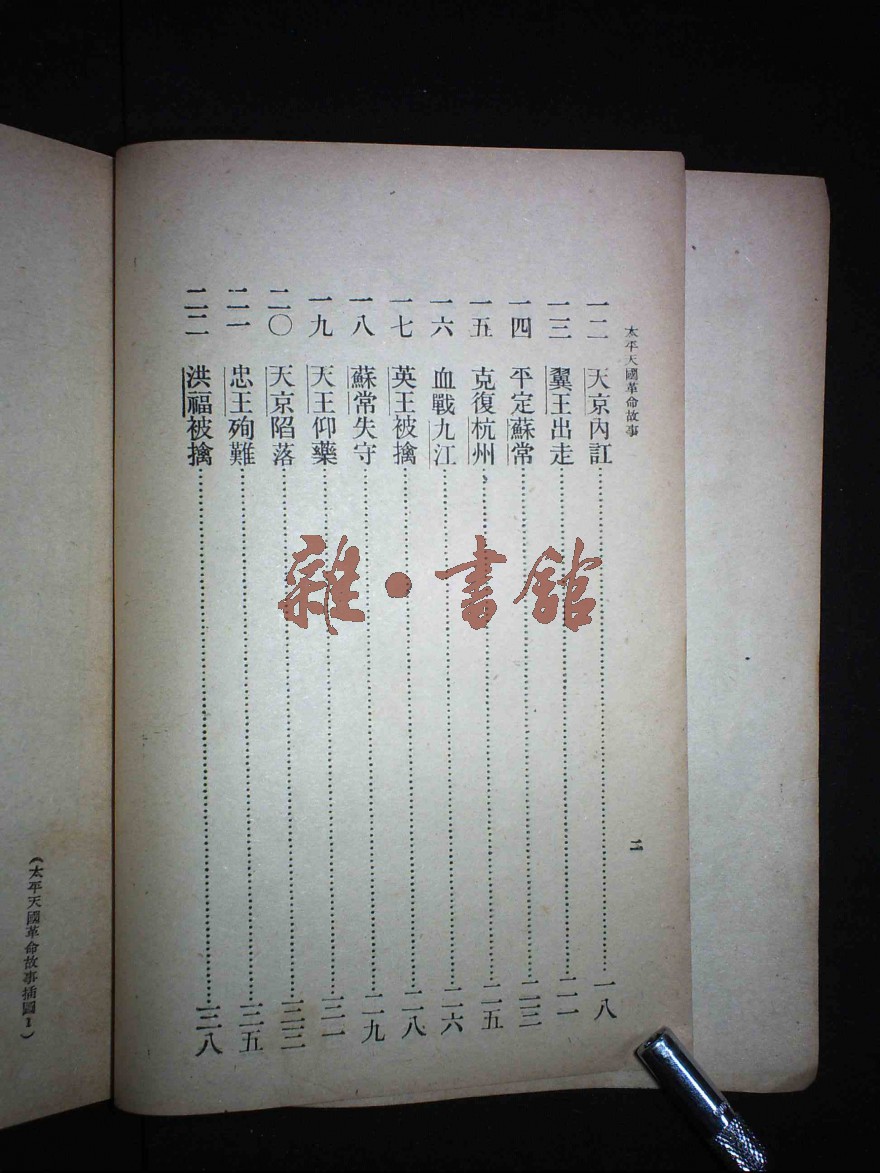 太平天國革命故事
一二 天京內訌……一八
一三 翼王出走……二一
一四 平定蘇常……二三
一五 克復杭州……二五
一六 血戰九江……二六
一七 英王被擒……二八
一八 蘇常失守……二九
一九 天王仰藥……三一
二〇 天京陷落……三三
二一 忠王殉難……三五
二二 洪福被擒……三八
二
(太平天國革命故事插圖1)
雜·書館